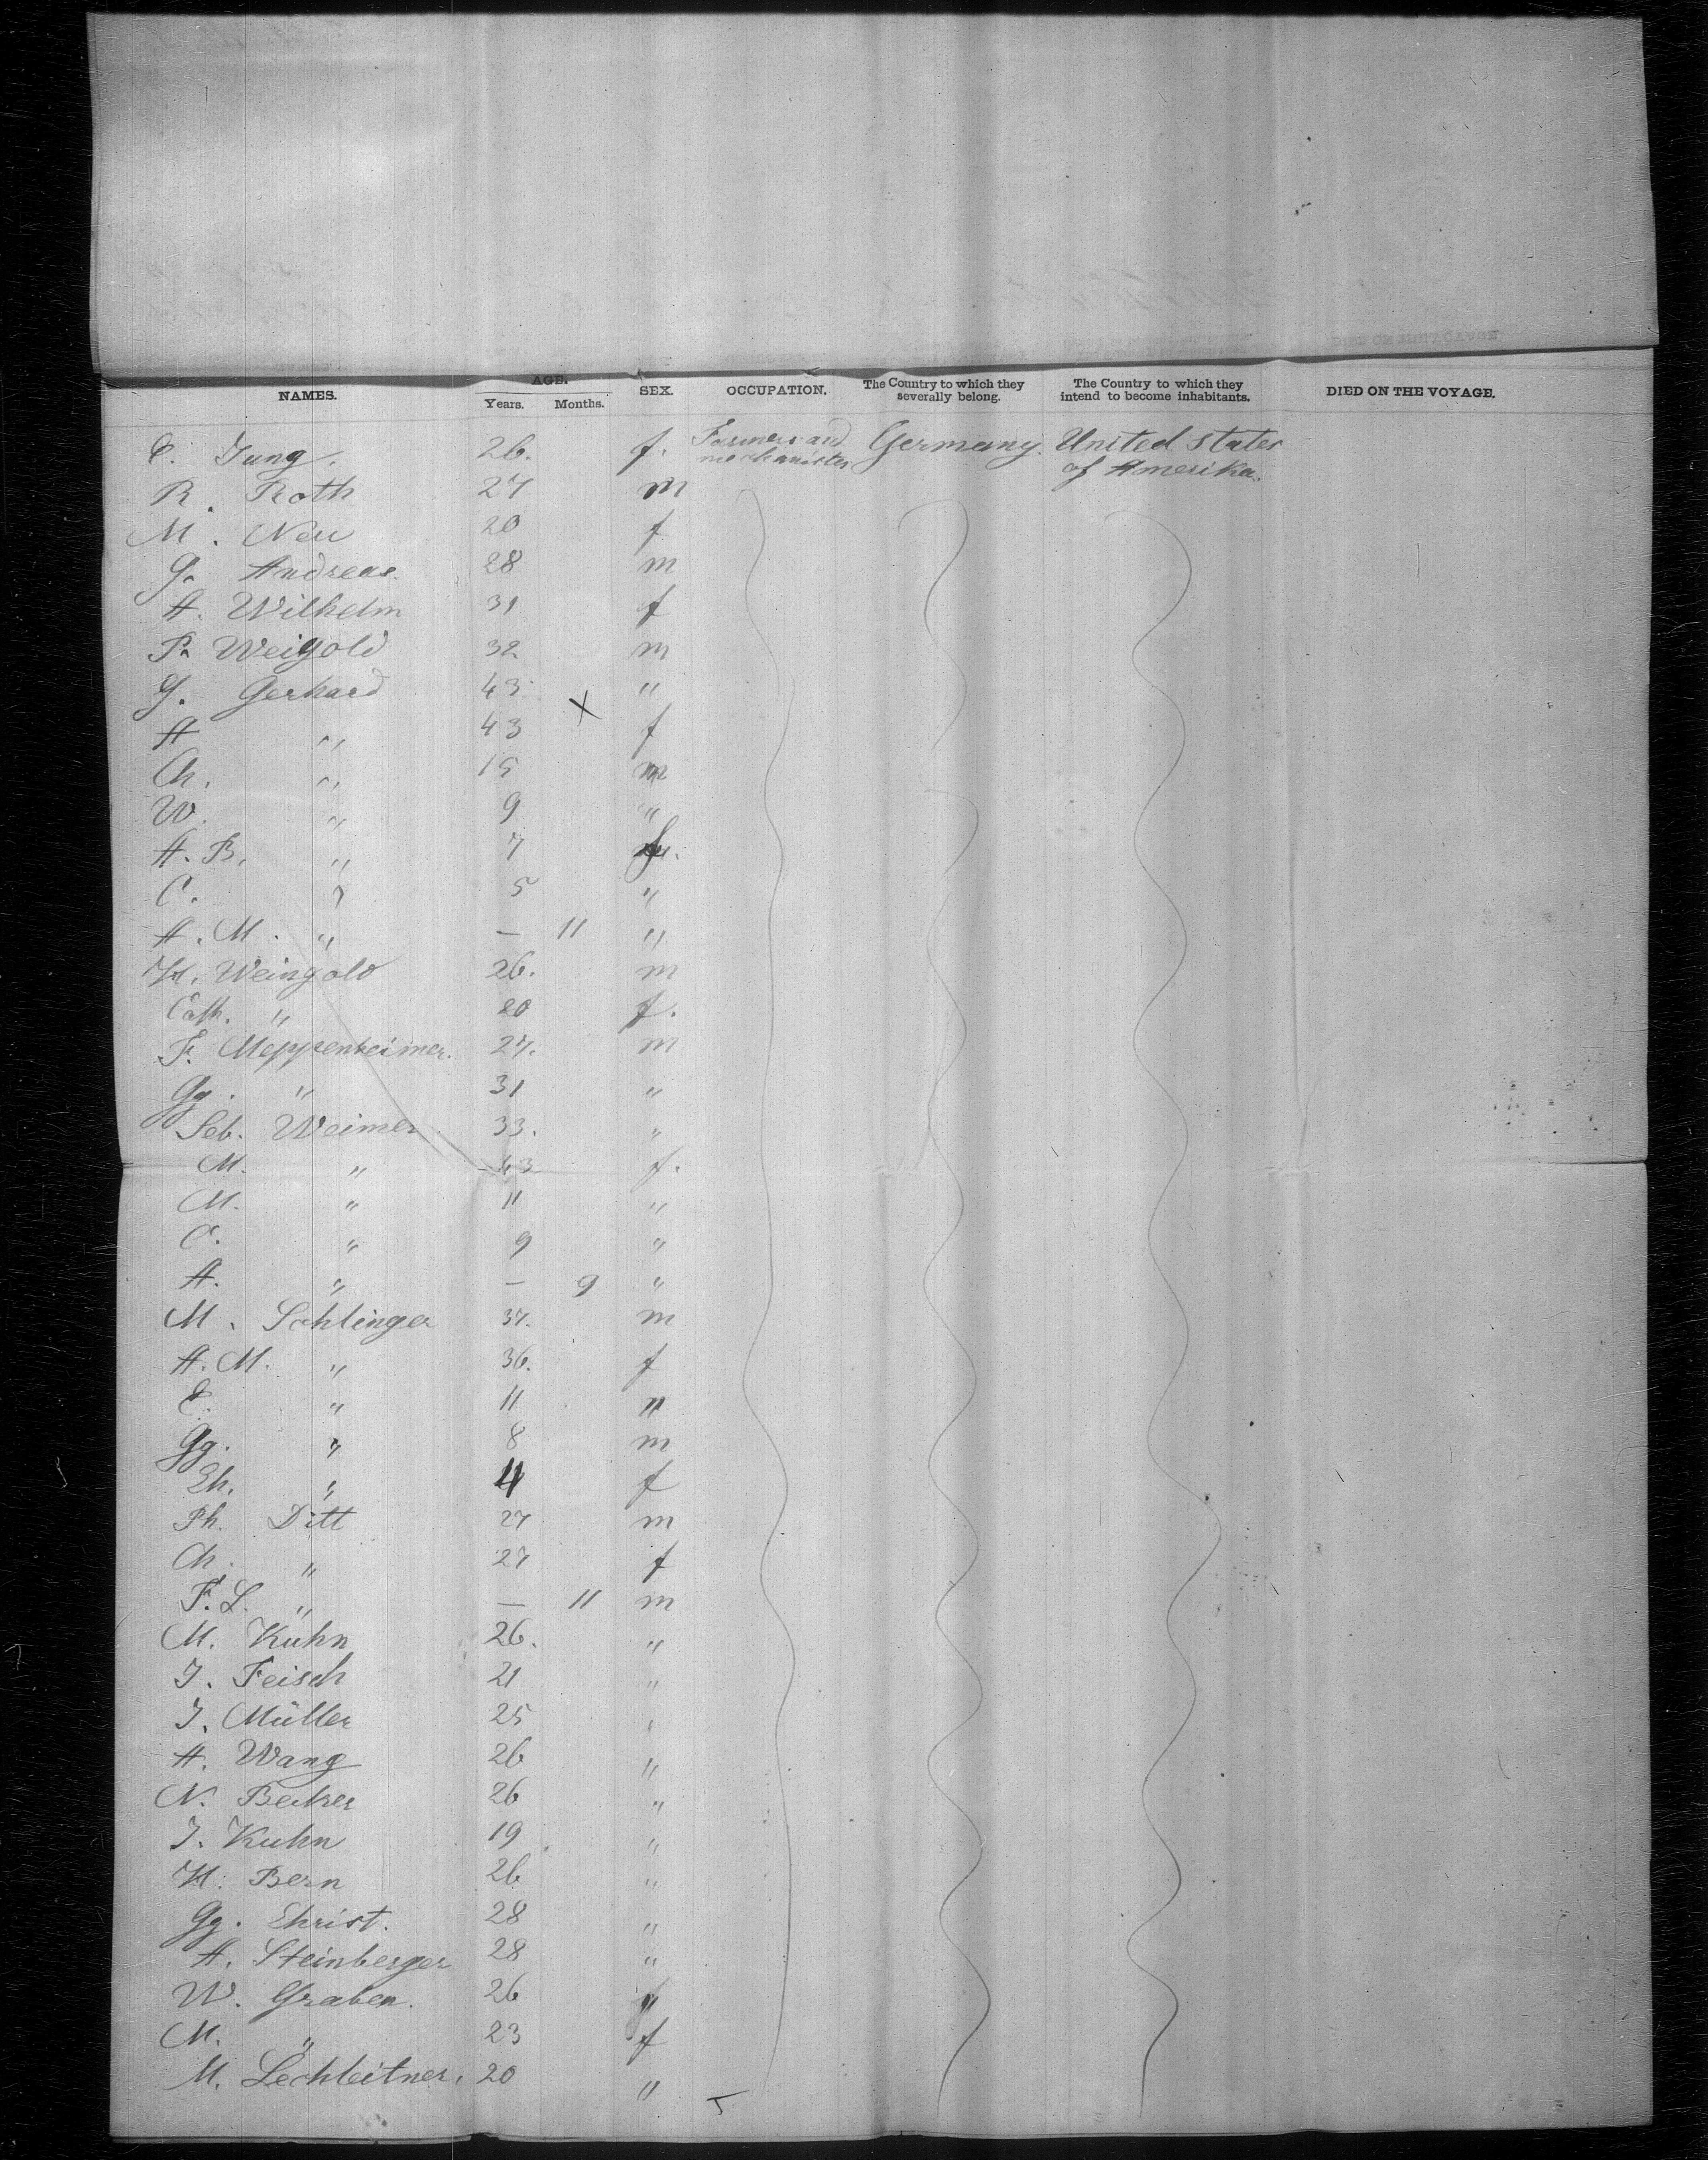 NAMES. AGE. SEX. OCCUPATION. The Country to which they severally belong. The Country to which they intend to become inhabitants. DIED ON THE VOYAGE.
Years. Months.
C. Jung. 26. f. Farmers and mechanister Germany. United States of Amerika.
R. Roth 27 m
M. Neu 20 f
G. Andreas. 28 m
A. Wilhelm 31 f
P. Weigold 32 m
G. Gerhard 43 "
A " 43 f
X
Ch. " 15 m
W. " 9 "
A. B. " 7 f.
C. " 5 "
A. M. " — 11 "
H. Weingold 26. m
Cath. " 20 f.
F. Meppenheimer. 27. m
Gg. " 31 "
Seb. Weimer 33. "
M. " 43 f.
M. " 11 "
C. " 9 "
A. " — 9 "
M. Schlinger 37. m
A. M. " 36. f
E. " 11 "
Gg. " 8 m
Eh. " 4 f
Ph. Ditt 27 m
Ch. " 27 f
F. L. " — 11 m
M. Kuhn 26. "
J. Feisch 21 "
J. Müller 25 "
A. Wang 26 "
N. Becker 26 "
J. Kuhn 19 "
H. Bern 26 "
Gg. Ehrist. 28 "
A. Steinberger 28 "
W. Graben. 26 "
M. " 23 f
M. Lechleitner. 20 "